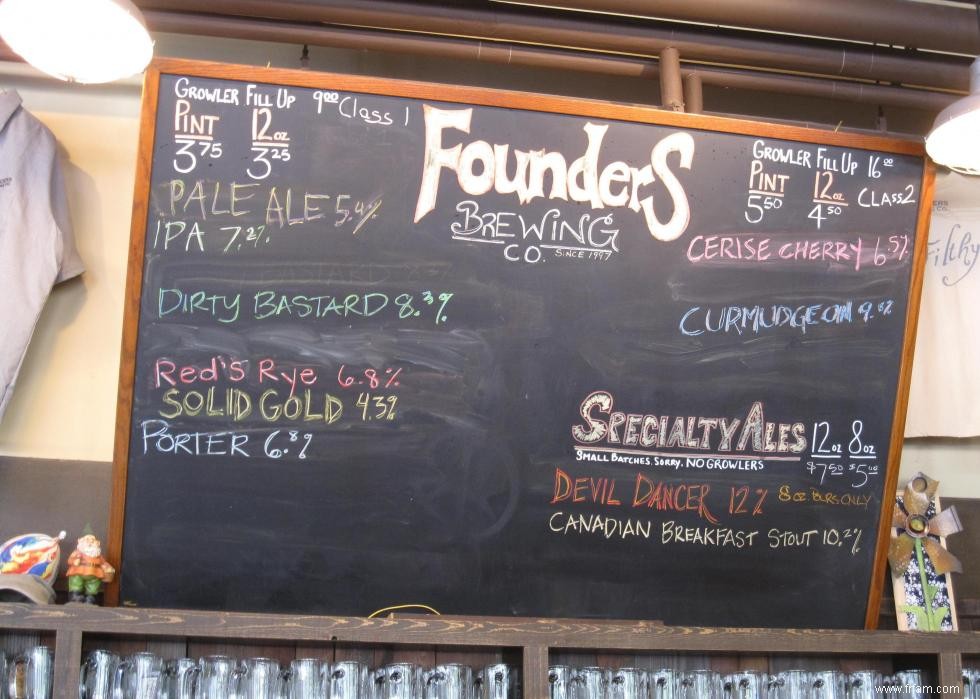 GROWLER FILL UP 9.00 Class 1
PINT 12oz
3.75 3.25
PALE ALE 5.4%
IPA 7.2%
DIRTY BASTARD 8.3%
Red's Rye 6.8%
SOLID GOLD 4.3%
PORTER 6.8%
FounderS
BREWING
CO. SINCE 1997
GROWLER FILL UP 16.00
PINT 12oz CLASS 2
5.50 4.50
CERISE CHERRY 6.5%
CURMUDGEON 9.8%
SPECIALTY ALES 12oz 8oz
SMALL BATCHES. SORRY, NO GROWLERS $7.50 $5.00
DEVIL DANCER 12% 8oz POURS ONLY
CANADIAN BREAKFAST STOUT 10.2%
Filthy
www.friam.com